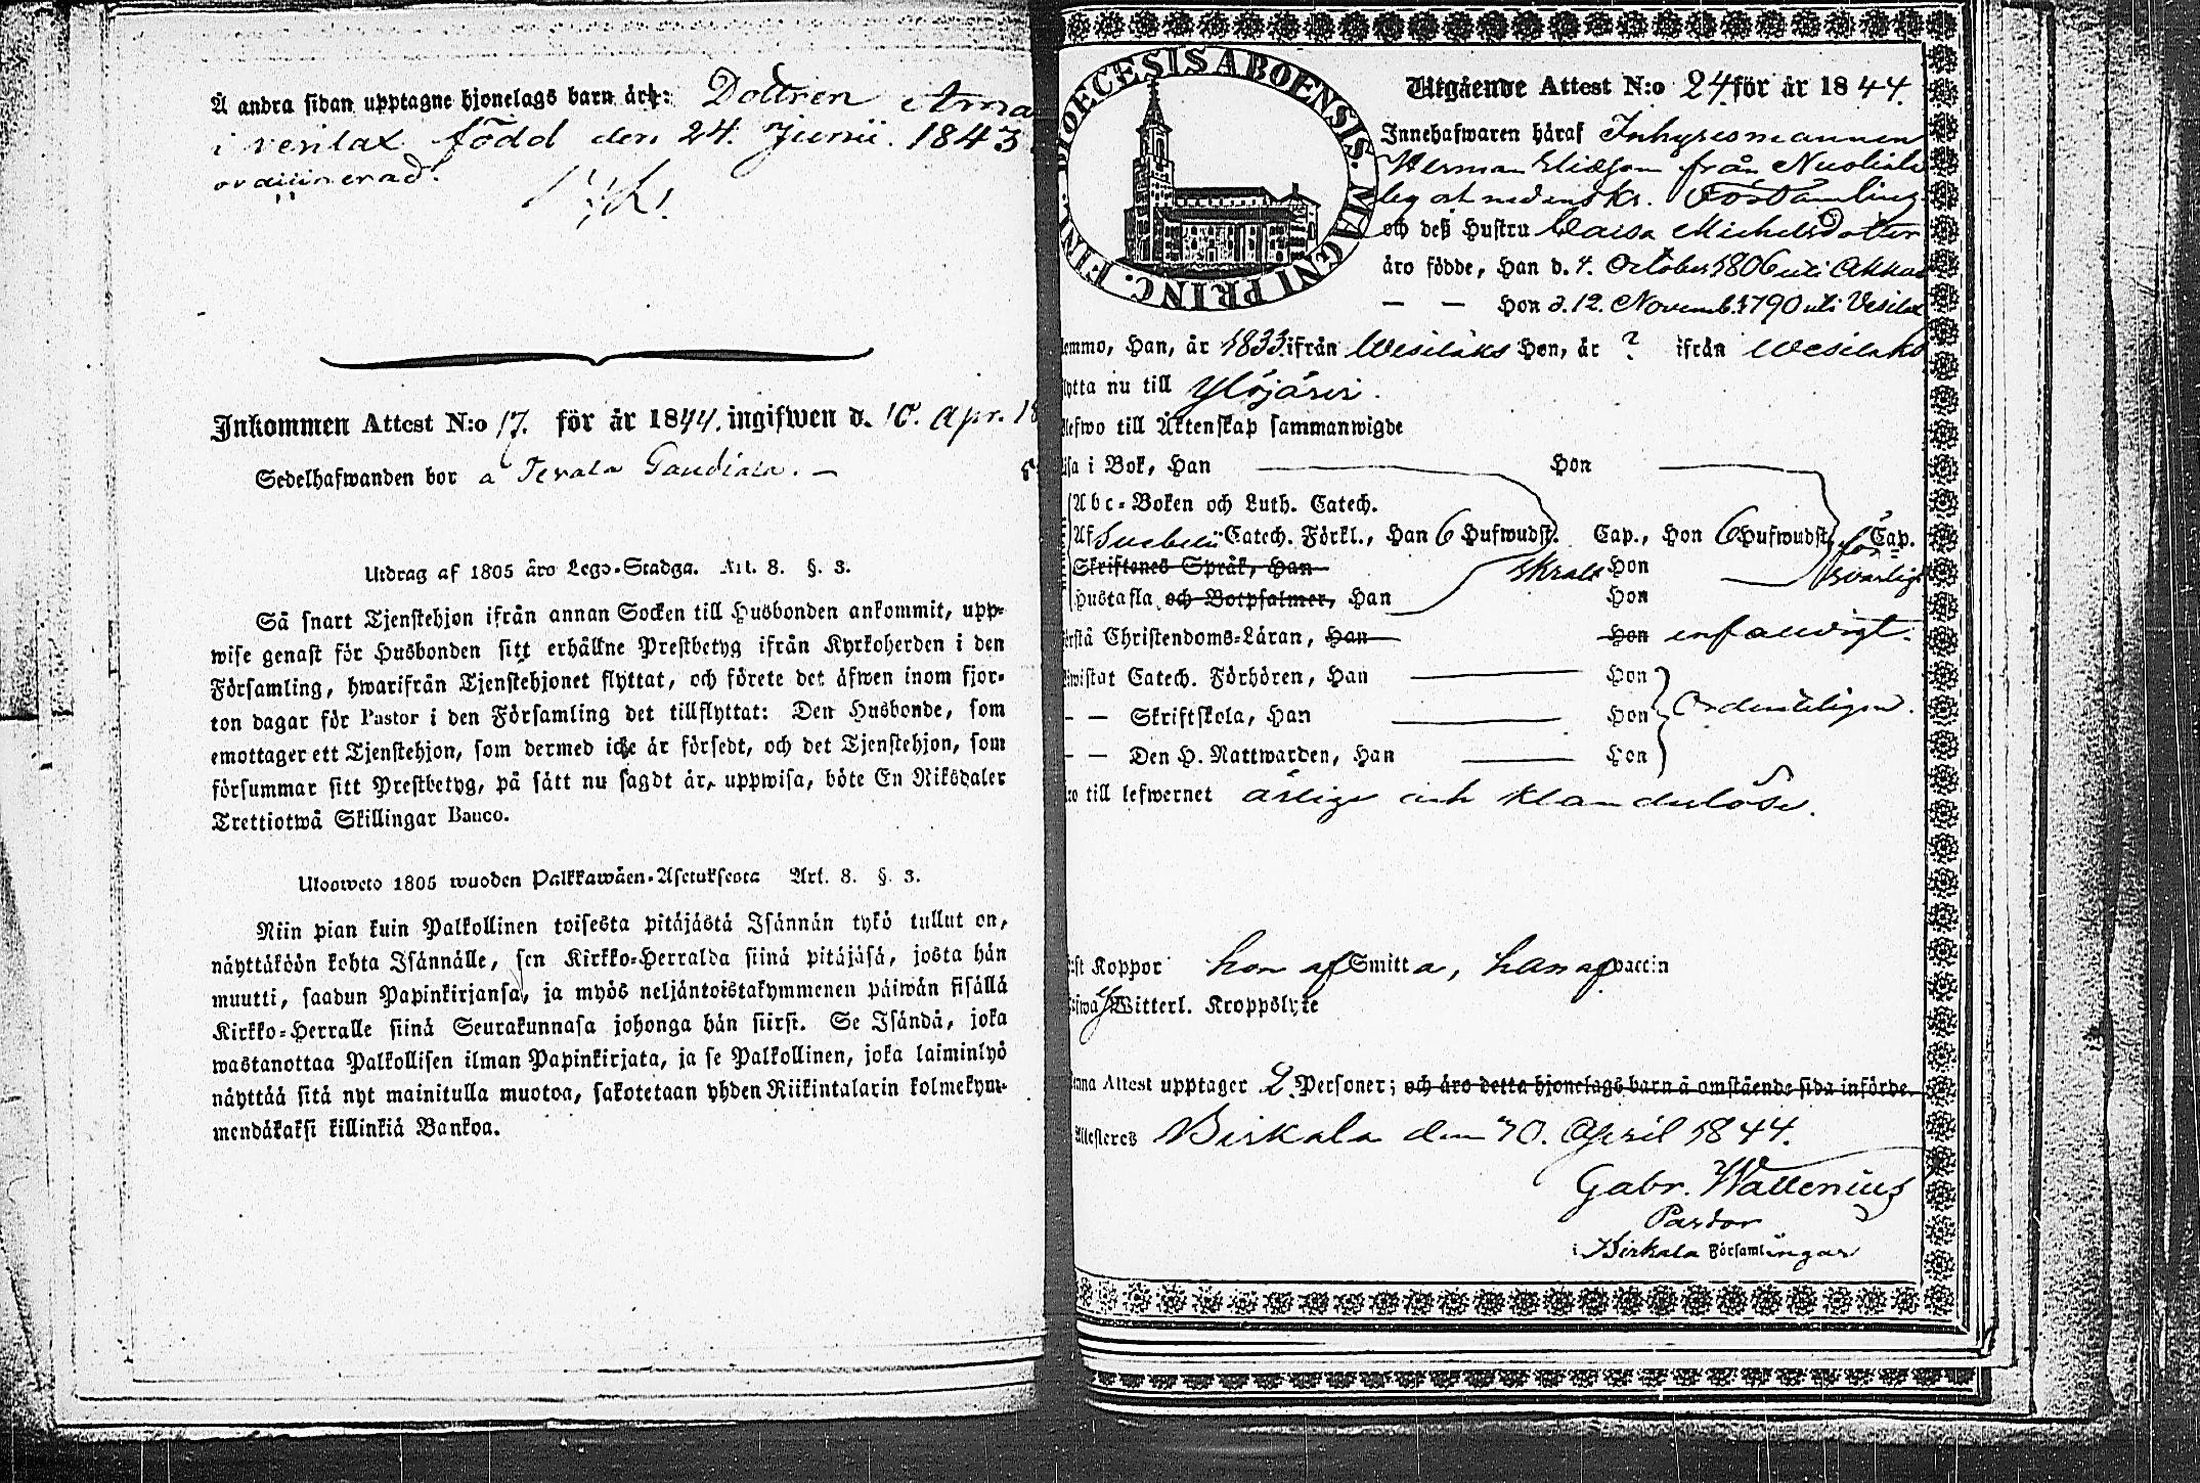 Å andra sidan upptagne hjonelags barn är: Dottren Anna
i vesilax född den 24. Junii. 1843
Inkommen Attest N:o 17. för år 1844. ingifwen d. 10. Apr. 18
Sedelhafwanden bor å
Utdrag af 1805 års Lego-Stadga. Art. 8. §. 3.
Så snart Tjenstehjon ifrån annan Socken till Husbonden ankommit, upp-
wise genast för Husbonden sitt erhållne Prestbetyg ifrån Kyrkoherden i den
Församling, hwarifrån Tjenstehjonet flyttat, och förete det äfwen inom fjor-
ton dagar för Pastor i den Församling det tillflyttat: Den Husbonde, som
emottager ett Tjenstehjon, som dermed icke är försedt, och det Tjenstehjon, som
försummar sitt Prestbetyg, på sätt nu sagdt är, uppwisa, böte En Riksdaler
Trettiotwå Skillingar Banco.
Ulosweto 1805 wuoden Palkkawäen-Asetuksesta Art. 8. §. 3.
Niin pian kuin Palkollinen toisesta pitäjästä Isännän tykö tullut on,
näyttäköön kohta Isännälle, sen Kirkko-Herralda siinä pitäjäsä, josta hän
muutti, saadun Papinkirjansa, ja myös neljäntoistakymmenen päiwän sisällä
Kirkko-Herralle siinä Seurakunnasa johonga hän siirsi. Se Isändä, joka
wastanottaa Palkollisen ilman Papinkirjata, ja se Palkollinen, joka laiminlyö
näyttää sitä nyt mainitulla muotoa, sakotetaan yhden Riikintalarin kolmekym-
mendäkaksi killinkiä Bankoa.
DIOECESIS ABOENSIS. MAGNI PRINC. FINL.
Utgående Attest N:o 24. för år 1844.
Innehafwaren häraf Inhysesmannen
Herman Eliæson från
by och Församling
och deß Hustru Caisa Michelsdotter
äro födde, Han d. 4. October 1806 uti Akkas
— — Hon d. 12. Novemb. 1790 uti Vesilax
emmo, Han, år 1833. ifrån Wesilaks Hon, år ? ifrån Wesilaks
lytta nu till Ylöjärvi.
lefwo till Äktenskap sammanwigde
äsa i Bok, Han — Hon —
Abc-Boken och Luth. Catech.
Af Svebelii Catech. Förkl., Han 6 Hufwudst. Cap., Hon 6 Hufwudst. Cap.
Skriftenes Språk, Han Hon — för
Hustafla och Botpsalmer, Han Hon svarligt
örstå Christendoms-Läran, Han Hon enfaldigt.
Bewistat Catech. Förhören, Han — Hon
— — Skriftskola, Han — Hon Ordenteligen.
— — Den H. Nattwarden, Han — Hon
äro till lefwernet ärlige och klanderlöse.
Haft Koppor hon af Smitta, han af Vaccin
Hafwa Witterl. Kroppslyte
Denna Attest upptager 2. Personer; och äro detta hjonelags barn å omstående sida införde.
Attesteres Birkala den 10. April 1844.
Gabr. Wallenius
Pastor
i Birkala Församlingar